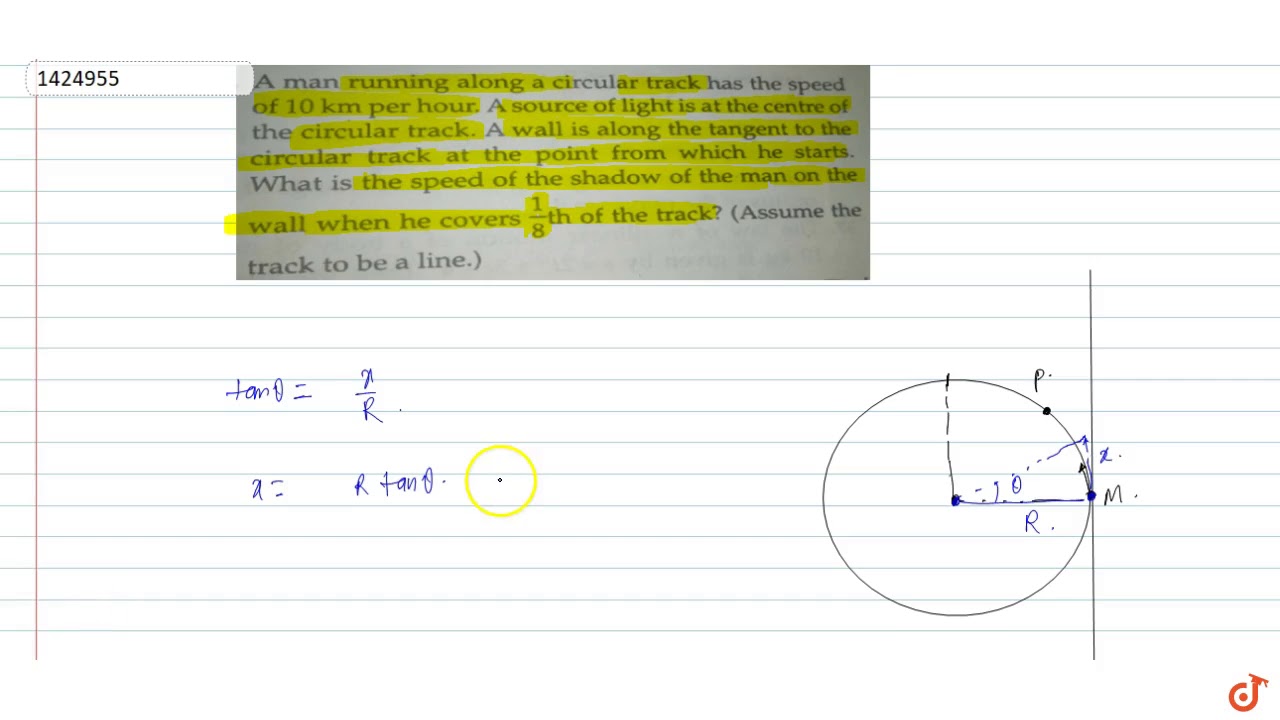 1424955
A man running along a circular track has the speed
of 10 km per hour. A source of light is at the centre of
the circular track. A wall is along the tangent to the
circular track at the point from which he starts.
What is the speed of the shadow of the man on the
wall when he covers 1/8 th of the track? (Assume the
track to be a line.)
tanθ = x/R .
x = R tanθ .
P.
x.
θ
M .
R .